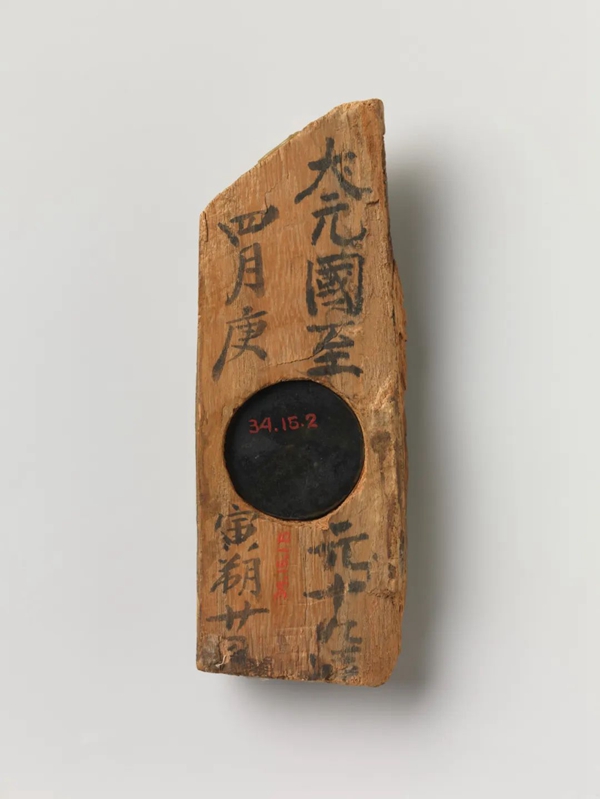 大元國至元十九
四月庚寅朔廿
34.15.2